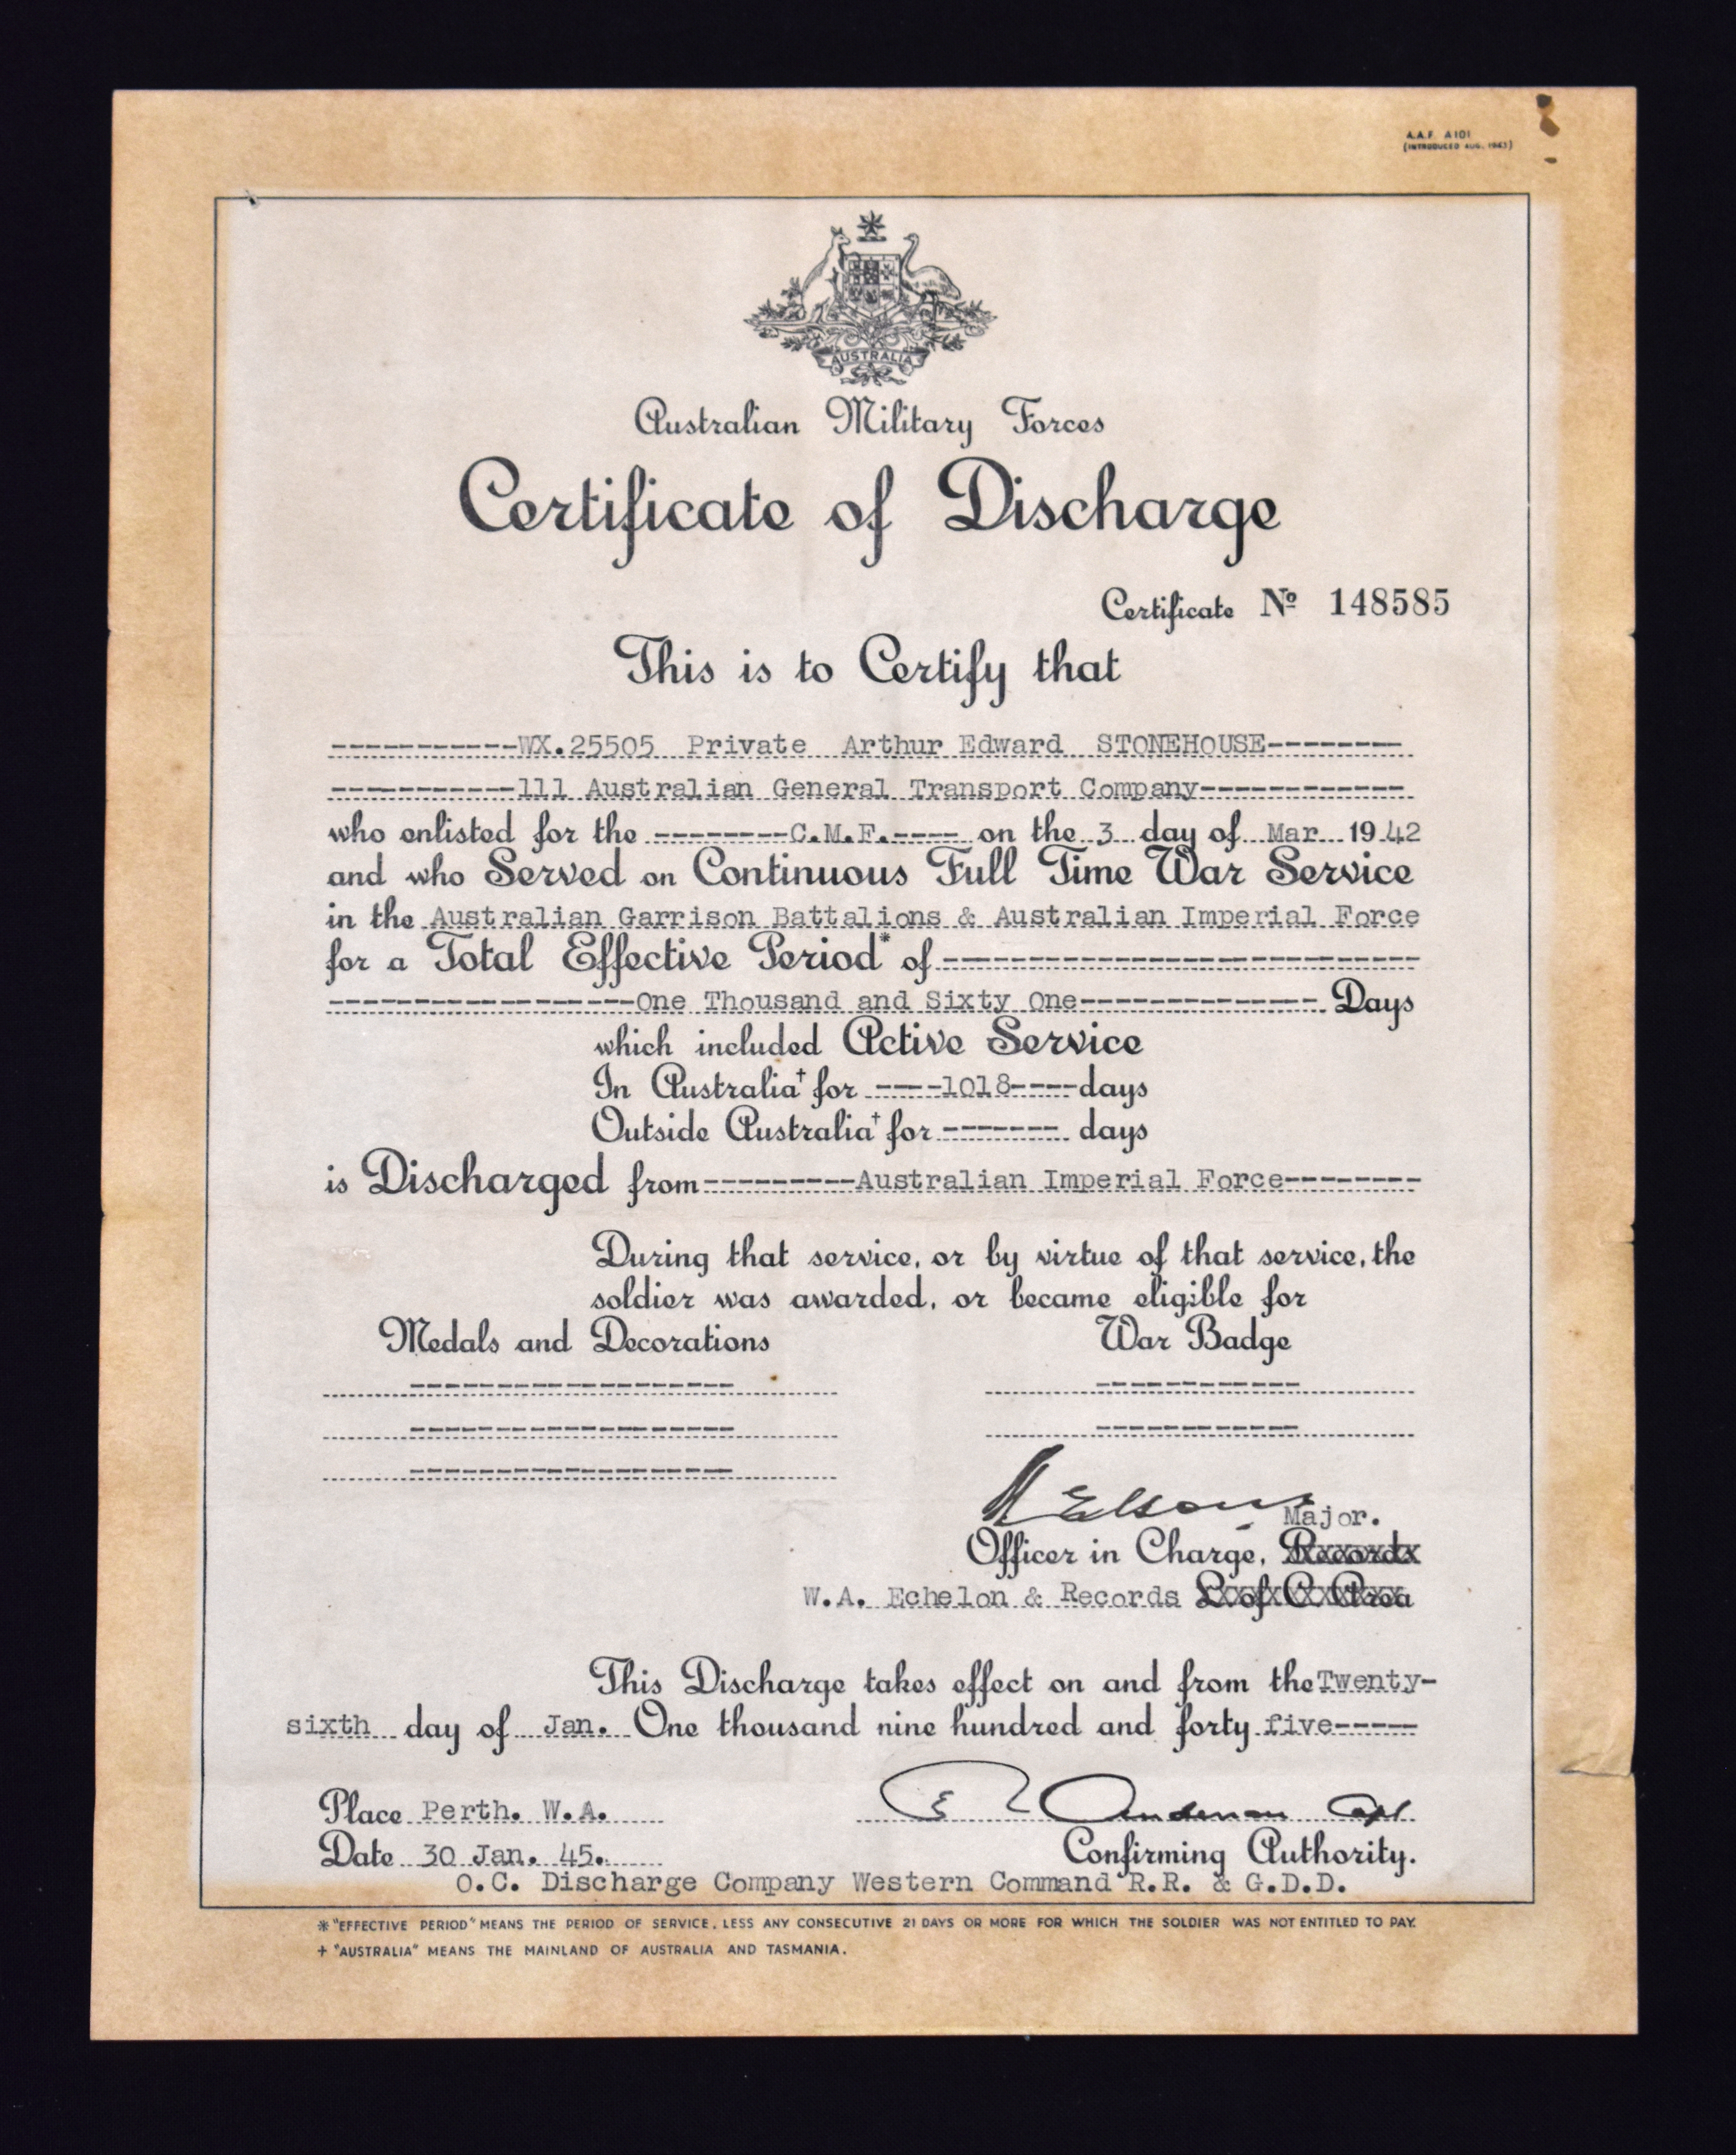 A.A.F. A101
(INTRODUCED AUG. 1943)
AUSTRALIA
Australian Military Forces
Certificate of Discharge
Certificate Nº 148585
This is to Certify that
-----------WX.25505 Private Arthur Edward STONEHOUSE--------
-----------111 Australian General Transport Company------------
who enlisted for the --------C.M.F.---- on the 3 day of Mar 19 42
and who Served on Continuous Full Time War Service
in the Australian Garrison Battalions & Australian Imperial Force
for a Total Effective Period* of ----------------------------
------------------One Thousand and Sixty One-------------- Days
which included Active Service
In Australia† for ----1018---- days
Outside Australia† for ------- days
is Discharged from ---------Australian Imperial Force--------
During that service, or by virtue of that service, the
soldier was awarded, or became eligible for
Medals and Decorations War Badge
Major.
Officer in Charge, Records
W.A. Echelon & Records L of C Area
This Discharge takes effect on and from the Twenty-
sixth day of Jan. One thousand nine hundred and forty five-----
Place Perth. W.A.
Anderson Capt
Date 30 Jan. 45. Confirming Authority.
O.C. Discharge Company Western Command R.R. & G.D.D.
* "EFFECTIVE PERIOD" MEANS THE PERIOD OF SERVICE, LESS ANY CONSECUTIVE 21 DAYS OR MORE FOR WHICH THE SOLDIER WAS NOT ENTITLED TO PAY.
+ "AUSTRALIA" MEANS THE MAINLAND OF AUSTRALIA AND TASMANIA.